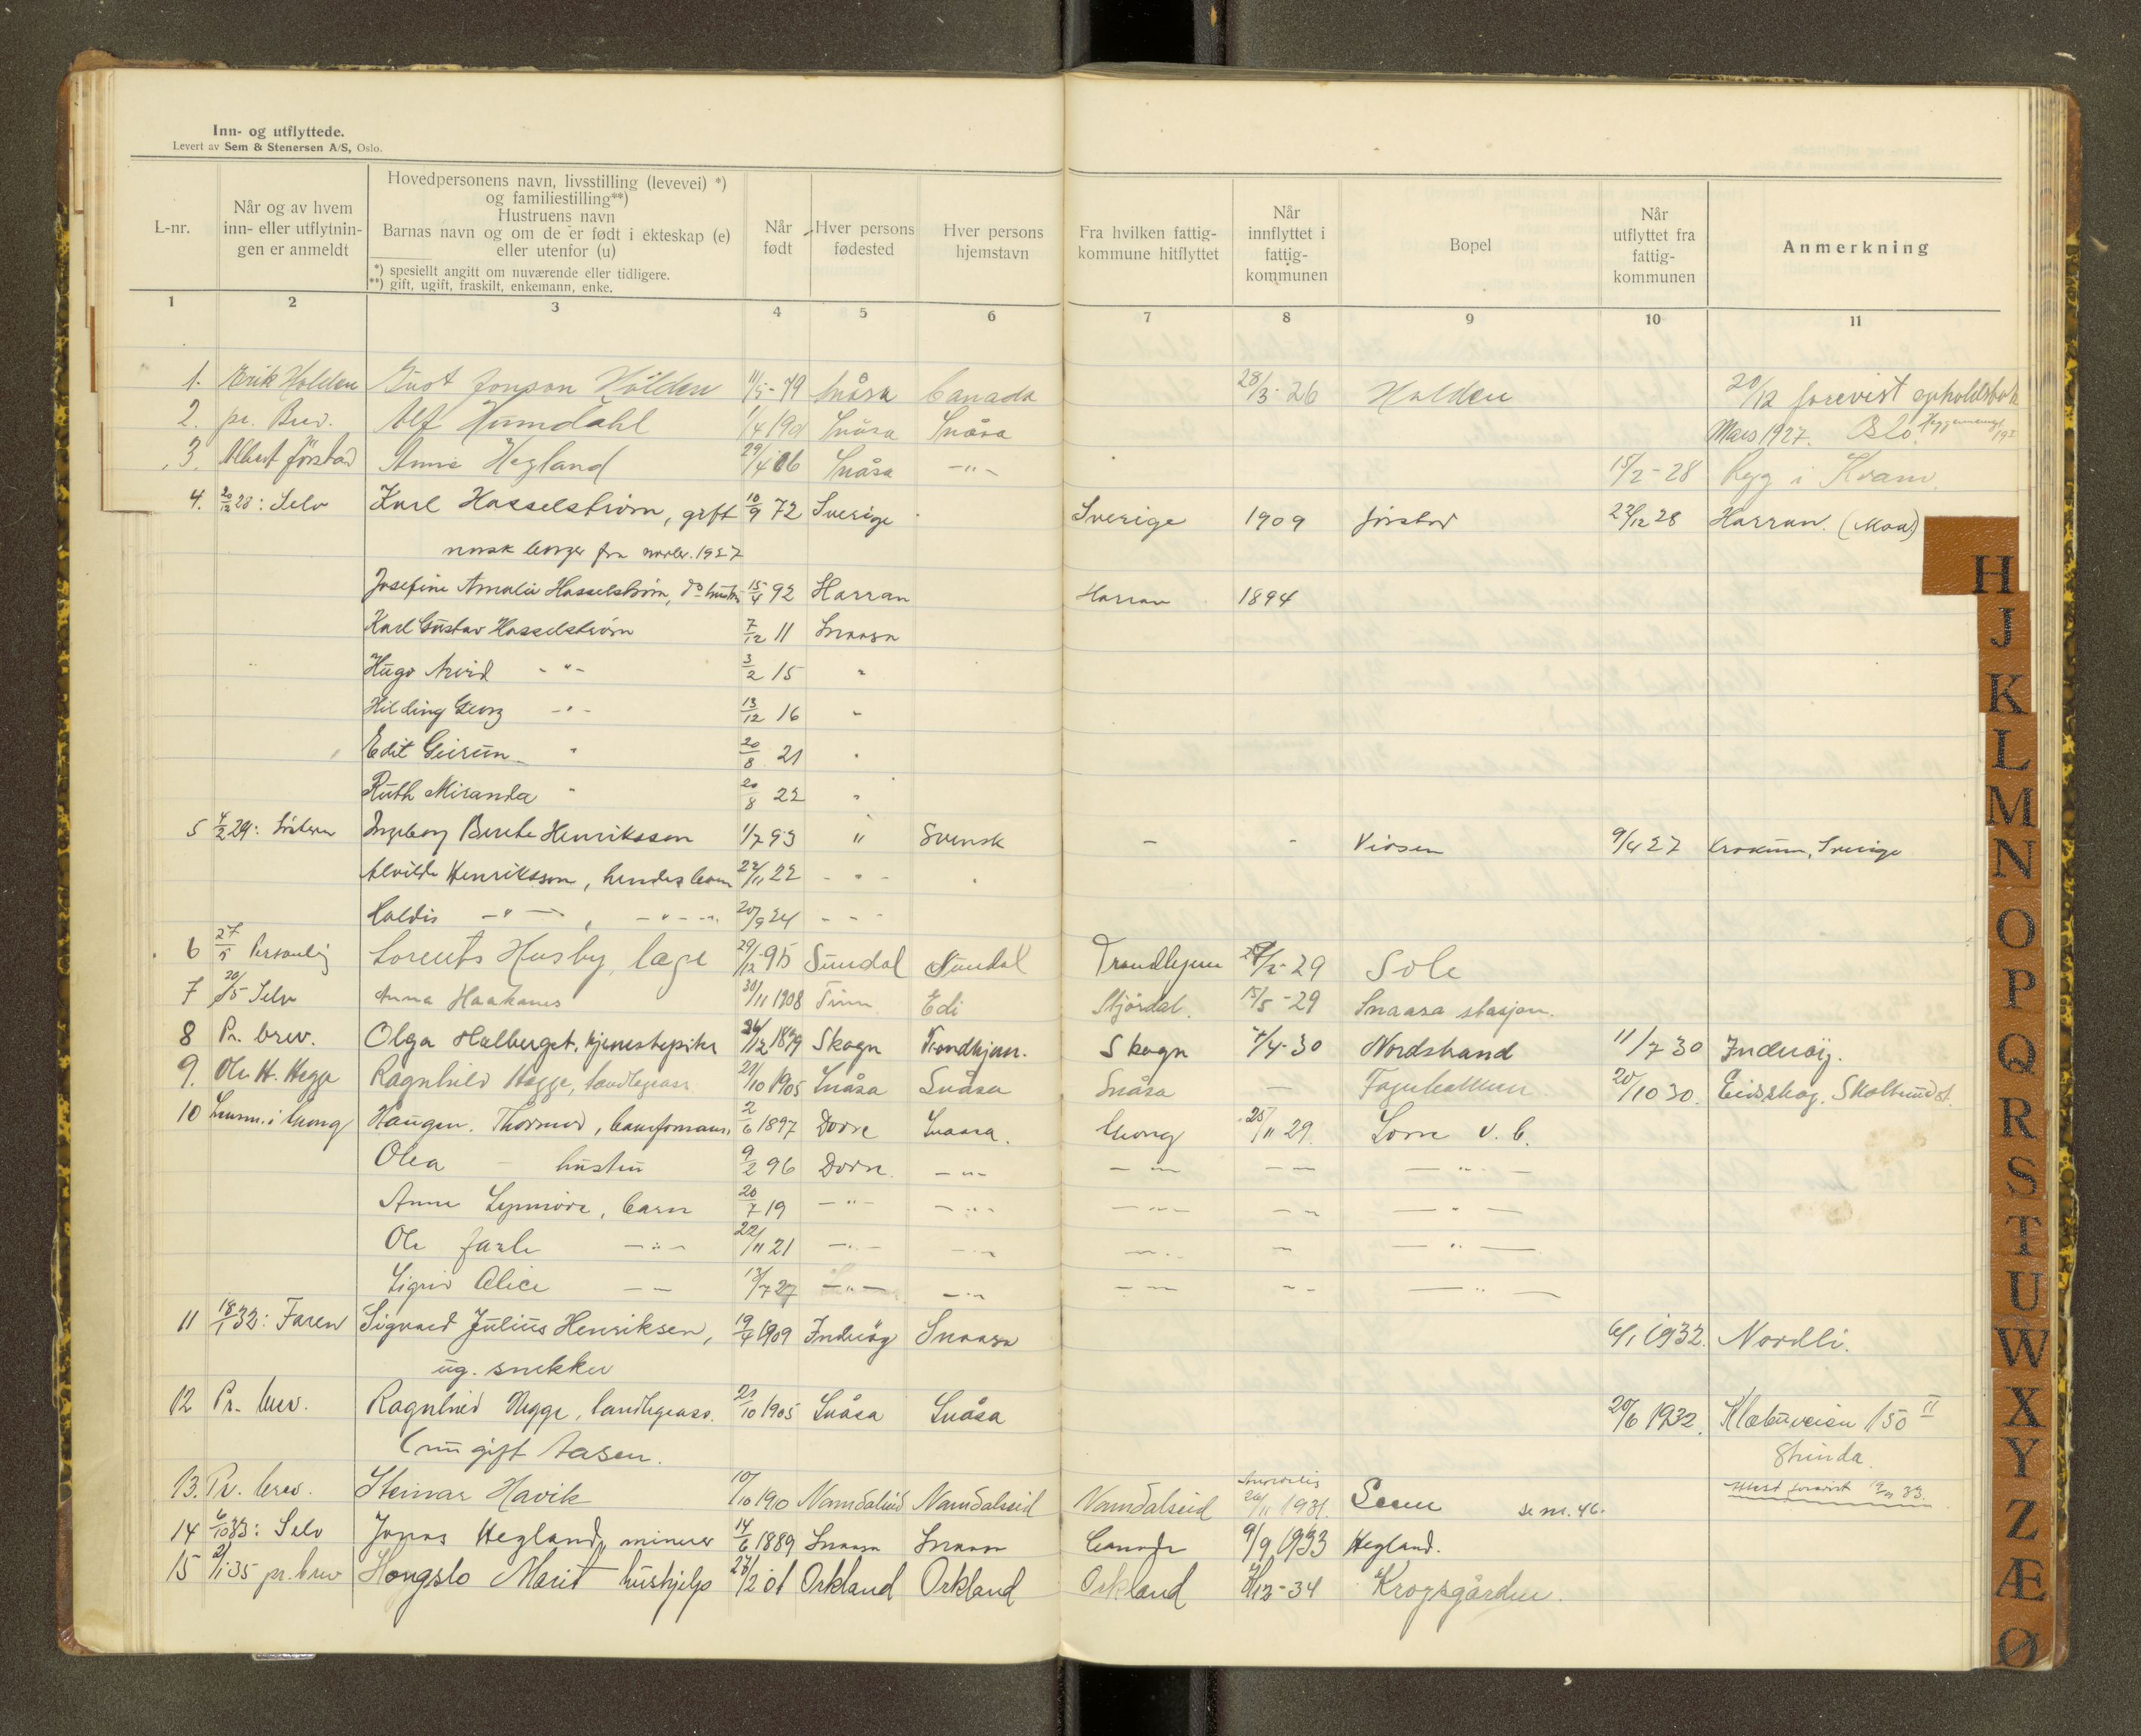 Inn- og utflyttede.
Levert av Sem & Stenersen A/S, Oslo.
L-nr.
Når og av hvem inn- eller utflytnin- gen er anmeldt
Hovedpersonens navn, livsstilling (levevei) *)
og familiestilling**)
Hustruens navn
Barnas navn og om de er født i ekteskap (e)
eller utenfor (u)
*) spesiellt angitt om nuværende eller tidligere.
**) gift, ugift, fraskilt, enkemann, enke.
Når født
Hver persons fødested
Hver persons hjemstavn
Fra hvilken fattig- kommune hitflyttet
Når innflyttet i fattig- kommunen
Bopel
Når utflyttet fra fattig- kommunen
Anmerkning
1 2 3 4 5 6 7 8 9 10 11
1. Erik Holden Jonson Holden 11/5-79 Snåsa Canada 28/3-26 Holden 20/12 forevist opholdsbok
2. pr. Brev. Alf Humdahl Snåsa Snåsa Mars 1927. Oslo.
3. Albert Jørstad Anne Hegland 29/4 06 Snåsa -"- 15/2-28 Regg i Kvam
4. 20/12 28: Selv Karl Hasselstrøm, gift 10/9 72 Sverige Sverige 1909 Jørstad 22/12 28 Harran. (Moa)
norsk borger fra 1927
Josefine Amalie Hasselstrøm, do hustru 15/4 92 Harran Harran 1894
Karl Gustav Hasselstrøm 7/12 11 Snaasa
Hugo Arvid -"- 3/2 15 "
Hilding Georg -"- 13/12 16 "
Edit Geirun " 20/8 21 "
Ruth Miranda " 20/8 22 "
5 4/2 29: Ingeborg Berte Henriksson 1/7 93 " Svensk - - Viosen 9/4 27 Krokum, Sverige
Alvilde Henriksson, hendes barn 22/11 22 -"-
Haldis -"-, -"- 20/9 24 - -
6 27/5 Personlig Lorents Husby, Sundal Sundal Trondhjem -29 Sole
7 20/5 Selv Anna Haakanes 30/11 1908 Tinn Edi Stjørdal. 15/5-29 Snaasa stasjon.
8 Pr. brev. Olga Halberget, tjenestepike 26/12 1879 Skogn Trondhjem. Skogn 7/4-30 Nordstrand 11/7 30 Inderøy.
9. Ole H. Hegge Ragnhild Hegge, 21/10 1905 Snåsa Snåsa Snåsa — 20/10 30. Eidskog. Skotterud st.
10 Haugen. Thormod, 2/6 1897 Dovre Snaasa. 25/11 29.
Olea - hustru 9/2 96 Dovre. -"- -"- -- -"-
Anne Synnøve, barn 20/7 19 -"- -"- -"- -- -"-
Ole Jarle -"- 22/11 21 -"- -"- -"- - -"-
Sigrid Alice -- 13/7 27 -"- -"- -- -- -"-
11 18/1 32: Faren Sigvard Julius Henriksen, 19/4 1909 Inderøy Snaasa 6/1 1932. Nordli.
ug. snekker
12 Pr. brev. Ragnhild Hegge, 21/10 1905 Snåsa Snåsa 20/6 1932. Klæbuveien 150 II
(nu gift Aasen. Strinda.
13. Pr. brev. Steinar Havik 10/10 1910 Namdalseid Namdalseid Namdalseid 26/11 1931. se nr. 46.
14 6/10 33: Selv Jonas Hegland, minerer 14/6 1889 Snaasa Snaasa Canada 9/9 1933 Hegland.
15 2/1 35 pr. brev Hongslo Marit hushjelp 27/2 01 Orkland Orkland Orkland /12-34 Krogsgården.
H
J
K
L
M
N
O
P
Q
R
S
T
U
W
X
Y
Z
Æ
Ø